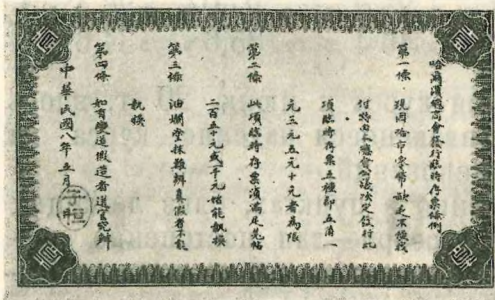 哈爾濱總商會發行臨時存票條例
第一條 現因哈市零幣缺乏不敷找
付特由本總會公議決定發行此
項臨時存票五種即五角一
元三元五元十元者為限
第二條 此項臨時存票須滿足羌帖
二百五十元或千元始能執換
第三條 油爛塗抹難辨真假者不能
執換
第四條 如有變造假造者送官究辦
中華民國八年五月